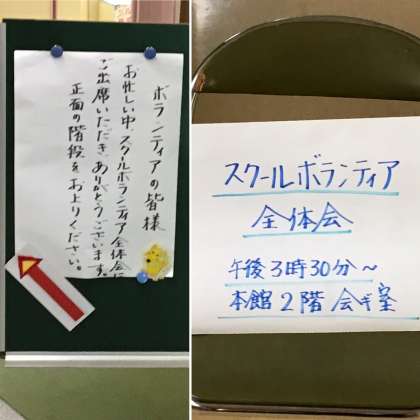 ボランティアの皆様
お忙しい中、スクールボランティア全体会に
ご出席いただき、ありがとうございます。
正面の階段をお上りください。
スクールボランティア
全体会
午後3時30分～
本館2階会ギ室